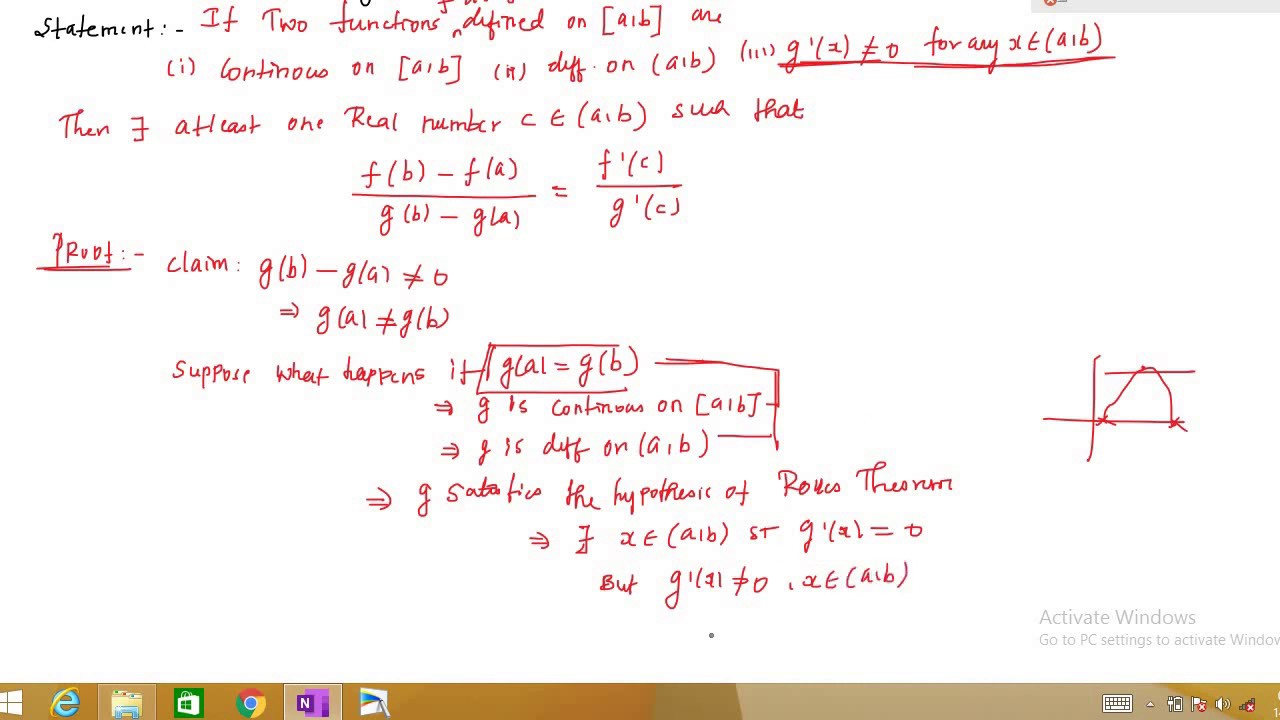 Statement:- If Two functions defined on [a,b] are
(i) Continous on [a,b] (ii) diff. on (a,b) (iii) g'(x) ≠ 0 for any x∈(a,b)
Then ∃ atleast one Real number c ∈ (a,b) such that
f(b) - f(a) / g(b) - g(a) = f'(c) / g'(c)
Proof:- claim: g(b) - g(a) ≠ 0
⇒ g(a) ≠ g(b)
Suppose what happens if g(a) = g(b)
⇒ g is continous on [a,b]
⇒ g is diff on (a,b)
⇒ g satisfies the hypothesis of Rolles Theorem
⇒ ∃ x∈(a,b) st g'(x) = 0
But g'(x) ≠ 0, x∈(a,b)
Activate Windows
Go to PC settings to activate Window